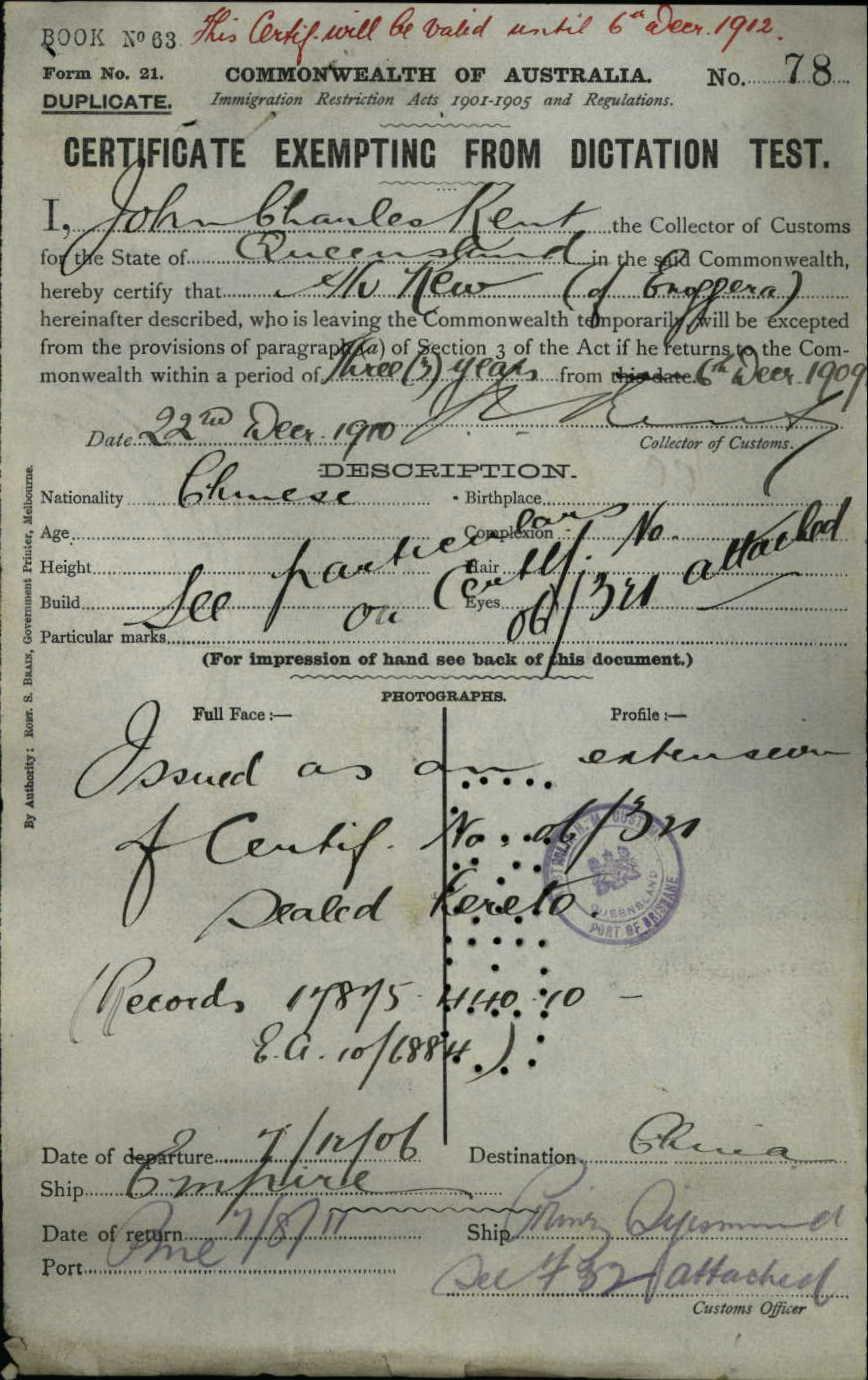 BOOK No 63 This Certif. will be valid until 6th Decr. 1912.
Form No. 21. COMMONWEALTH OF AUSTRALIA. No. 78
DUPLICATE. Immigration Restriction Acts 1901-1905 and Regulations.
CERTIFICATE EXEMPTING FROM DICTATION TEST.
I, John Charles Kent the Collector of Customs
for the State of Queensland in the said Commonwealth,
hereby certify that Ah Kew (of Enoggera)
hereinafter described, who is leaving the Commonwealth temporarily will be excepted
from the provisions of paragraph (a) of Section 3 of the Act if he returns to the Com-
monwealth within a period of Three (3) years from this date 6th Decr. 1909
Date 22nd Decr. 1910
Collector of Customs.
DESCRIPTION.
Nationality Chinese Birthplace
Age Complexion
Height Hair
Build Eyes
Particular marks
See particulars
on Certif. No. 06/321 attached
(For impression of hand see back of this document.)
PHOTOGRAPHS.
Full Face :— Profile :—
Issued as an extension
of Certif. No. 06/321
sealed hereto.
PORT OF BRISBANE
QUEENSLAND
(Records 17875 440 10 —
E.A. 10/6884.)
Date of departure 7/12/06 Destination China
Ship Empire
Date of return 7/8/11 Ship Prinz Sigismund
Port Bne
See F 32 attached
Customs Officer
By Authority: ROBT. S. BRAIN, Government Printer, Melbourne.